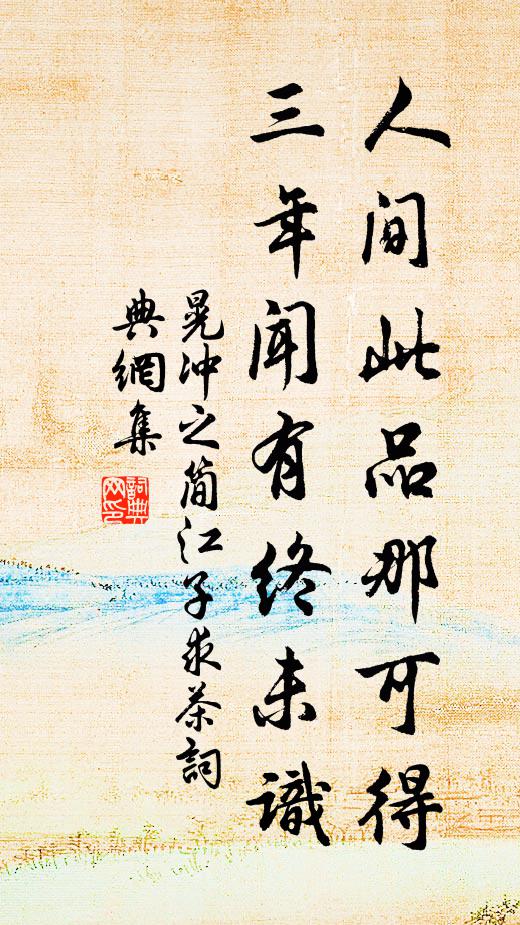 人间此品那可得
三年闻有终未識
晃冲之简江子求茶詞
典網集
詞典网印